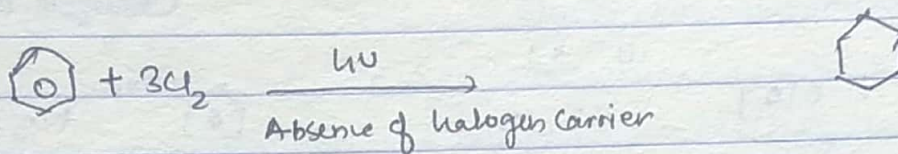 + 3Cl₂ hν
Absence of halogen Carrier